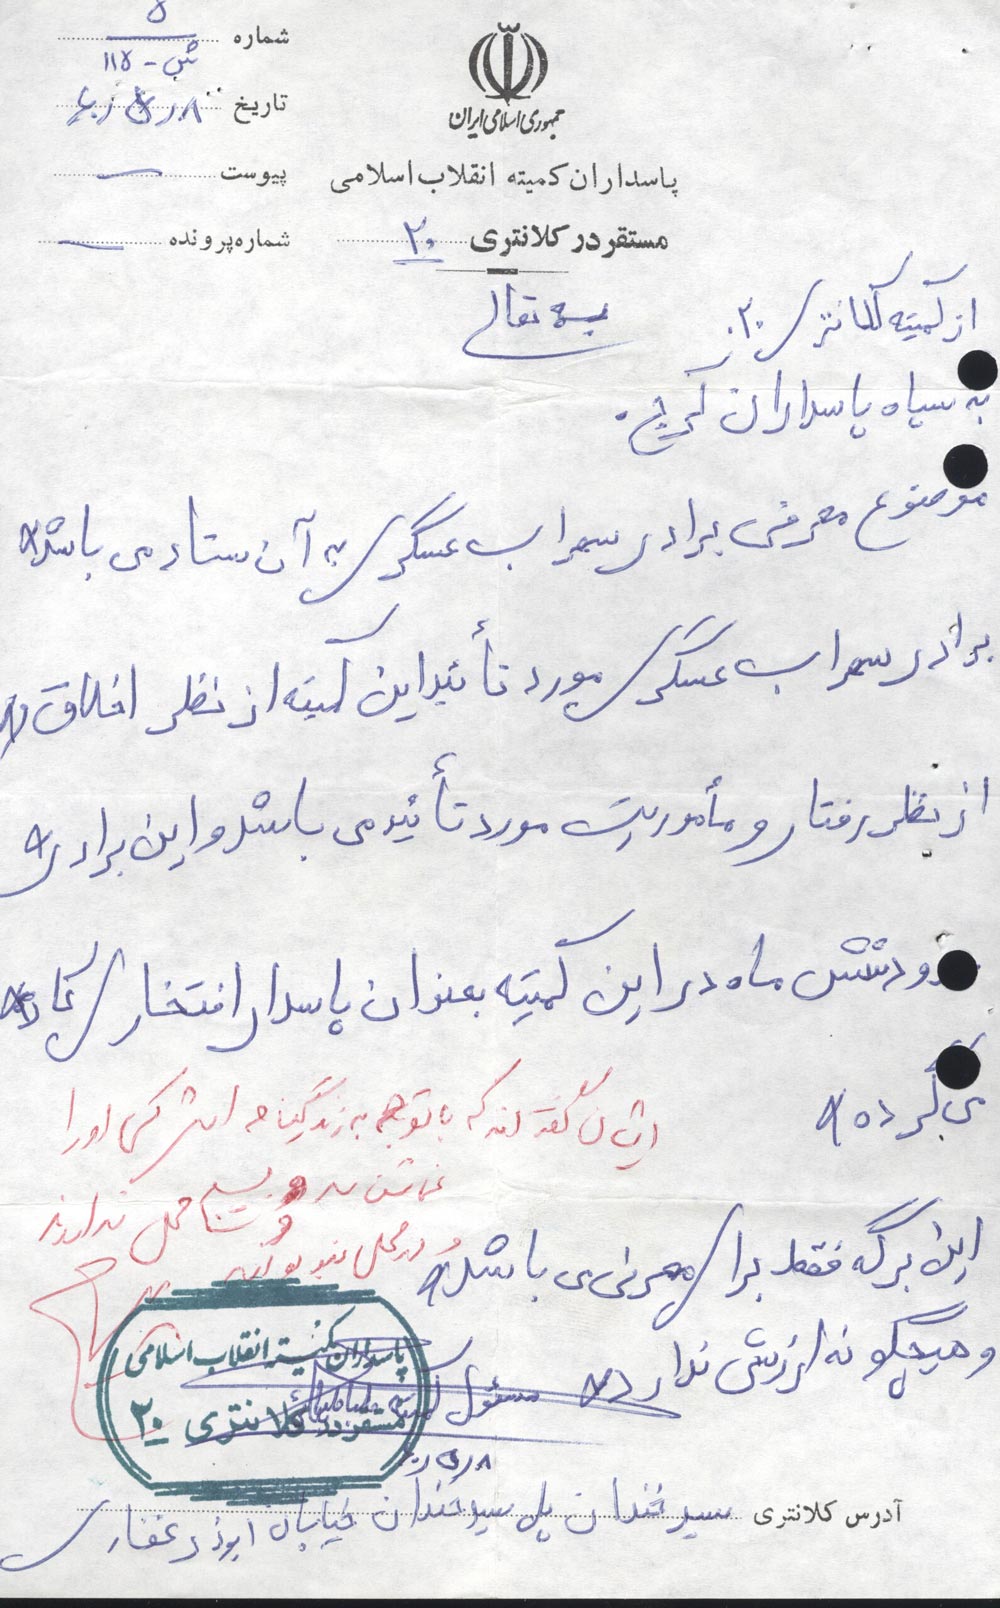 شماره ۵
ش - ۱۱۵
تاریخ
پیوست
شماره پرونده
جمهوری اسلامی ایران
پاسداران کمیته انقلاب اسلامی
مستقر در کلانتری ۲۰
بسمه تعالی
از کمیته کلانتری ۲۰
به سپاه پاسداران کرج
موضوع معرفی برادر سهراب عسگری به آن ستاد می باشد
برادر سهراب عسگری مورد تأئید این کمیته از نظر اخلاق
از نظر رفتار و مأموریت مورد تأئید می باشد و این برادر
حدود شش ماه در این کمیته بعنوان پاسدار افتخاری کار
می کرده
ایشان گفته اند که با توجه به زندگینامه اش کسی او را
نمی شناسد و بسیج محل ندارند
و در محل نبوده اند
این برگه فقط برای معرفی می باشد
و هیچگونه ارزش ندارد
مسئول کمیته
پاسداران کمیته انقلاب اسلامی
مستقر در کلانتری ۲۰
آدرس کلانتری سیدخندان پل سیدخندان خیابان ابوذر غفاری